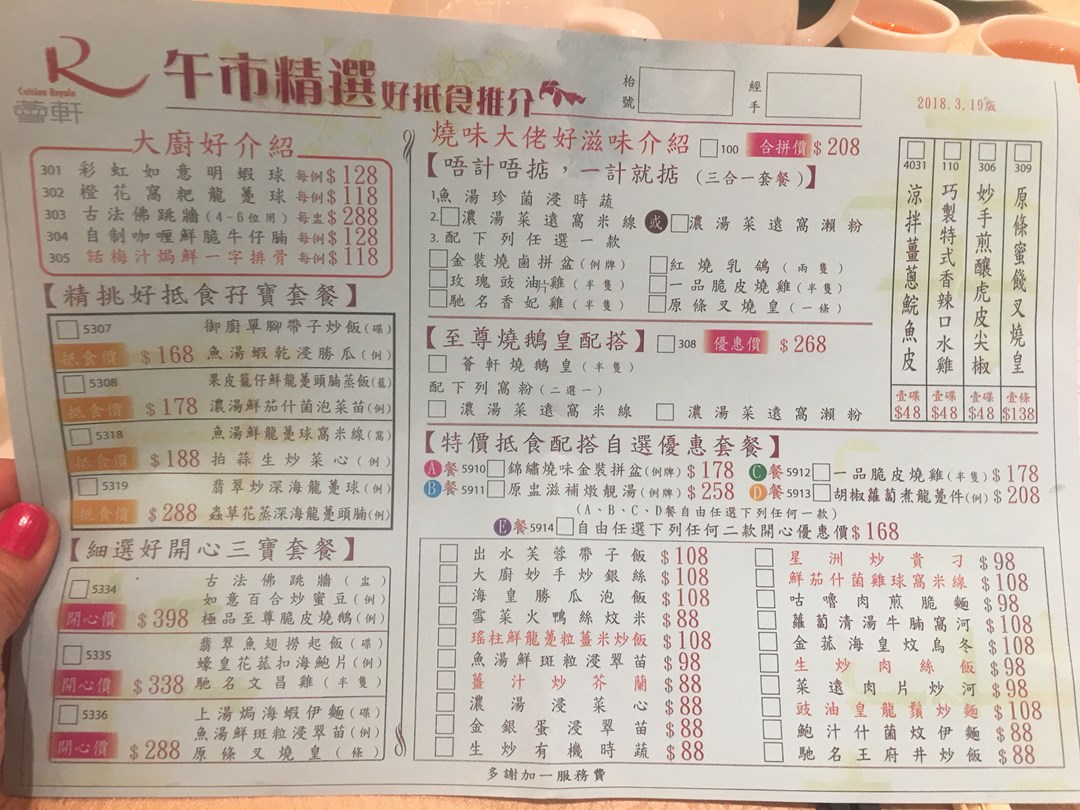 R
Cuisine Royale
薈軒
午市精選 好抵食推介
枱號
經手
2018.3.19版
大廚好介紹
301 彩虹如意明蝦球 每例$128
302 橙花窩粑龍躉球 每例$118
303 古法佛跳牆(4-6位用) 每盅$288
304 自制咖喱鮮脆牛仔腩 每例$128
305 話梅汁焗鮮一字排骨 每例$118
【精挑好抵食孖寶套餐】
5307 御廚單腳帶子炒飯(碟)
抵食價 $168 魚湯蝦乾浸勝瓜(例)
5308 果皮籠仔鮮龍躉頭腩蒸飯(籠)
抵食價 $178 濃湯鮮茄什菌泡菜苗(例)
5318 魚湯鮮龍躉球窩米線(窩)
抵食價 $188 拍蒜生炒菜心(例)
5319 翡翠炒深海龍躉球(例)
抵食價 $288 蟲草花蒸深海龍躉頭腩(例)
【細選好開心三寶套餐】
5334 古法佛跳牆(盅)
如意百合炒蜜豆(例)
開心價 $398 極品至尊脆皮燒鵝(例)
5335 翡翠魚翅撈起飯(碟)
蠔皇花菰扣海鮑片(例)
開心價 $338 馳名文昌雞(半隻)
5336 上湯焗海蝦伊麵(碟)
魚湯鮮斑粒浸翠苗(例)
開心價 $288 原條叉燒皇(條)
燒味大佬好滋味介紹 100 合拼價 $208
【唔計唔掂，一計就掂(三合一套餐)】
1.魚湯珍菌浸時蔬
2.濃湯菜遠窩米線 或 濃湯菜遠窩瀨粉
3.配下列任選一款
金裝燒鹵拼盆(例牌) 紅燒乳鴿(兩隻)
玫瑰豉油雞(半隻) 一品脆皮燒雞(半隻)
馳名香妃雞(半隻) 原條叉燒皇(一條)
【至尊燒鵝皇配搭】 308 優惠價 $268
薈軒燒鵝皇(半隻)
配下列窩粉(二選一)
濃湯菜遠窩米線 濃湯菜遠窩瀨粉
4031 涼拌薑蔥鯇魚皮 壹碟 $48
110 巧製特式香辣口水雞 壹碟 $48
306 妙手煎釀虎皮尖椒 壹碟 $48
309 原條蜜餞叉燒皇 壹條 $138
【特價抵食配搭自選優惠套餐】
A餐 5910 錦繡燒味金裝拼盆(例牌) $178 C餐 5912 一品脆皮燒雞(半隻) $178
B餐 5911 原盅滋補燉靚湯(例牌) $258 D餐 5913 胡椒蘿蔔煮龍躉件(例) $208
(A、B、C、D餐自由任選下列任何一款)
E餐 5914 自由任選下列任何二款開心優惠價$168
出水芙蓉帶子飯 $108
大廚妙手炒銀絲 $108
海皇勝瓜泡飯 $108
雪菜火鴨絲炆米 $88
瑤柱鮮龍躉粒薑米炒飯 $108
魚湯鮮斑粒浸翠苗 $98
薑汁炒芥蘭 $88
濃湯浸菜心 $88
金銀蛋浸翠苗 $88
生炒有機時蔬 $88
星洲炒貴刁 $98
鮮茄什菌雞球窩米線 $108
咕嚕肉煎脆麵 $98
蘿蔔清湯牛腩窩河 $108
金菰海皇炆烏冬 $108
生炒肉絲飯 $98
菜遠肉片炒河 $98
豉油皇龍鬚炒麵 $108
鮑汁什菌炆伊麵 $88
馳名王府井炒飯 $88
多謝加一服務費